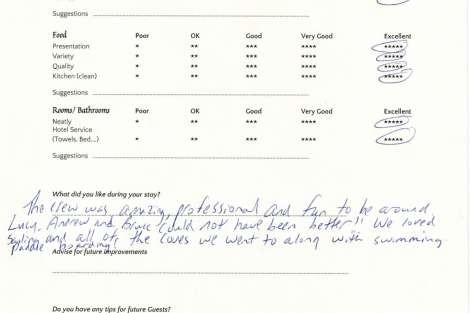 Suggestions
Food Poor OK Good Very Good Excellent
Presentation * ** *** **** *****
Variety * ** *** **** *****
Quality * ** *** **** *****
Kitchen (clean) * ** *** **** *****
Suggestions
Rooms/ Bathrooms Poor OK Good Very Good Excellent
Neatly * ** *** **** *****
Hotel Service
(Towels, Bed...) * ** *** **** *****
Suggestions
What did you like during your stay?
The crew was amazing, professional and fun to be around
Lucy, Andrew and Bruce could not have been better" We loved
sailing and all of the coves we went to along with swimming
paddle boarding!
Advise for future improvements
Do you have any tips for future Guests?